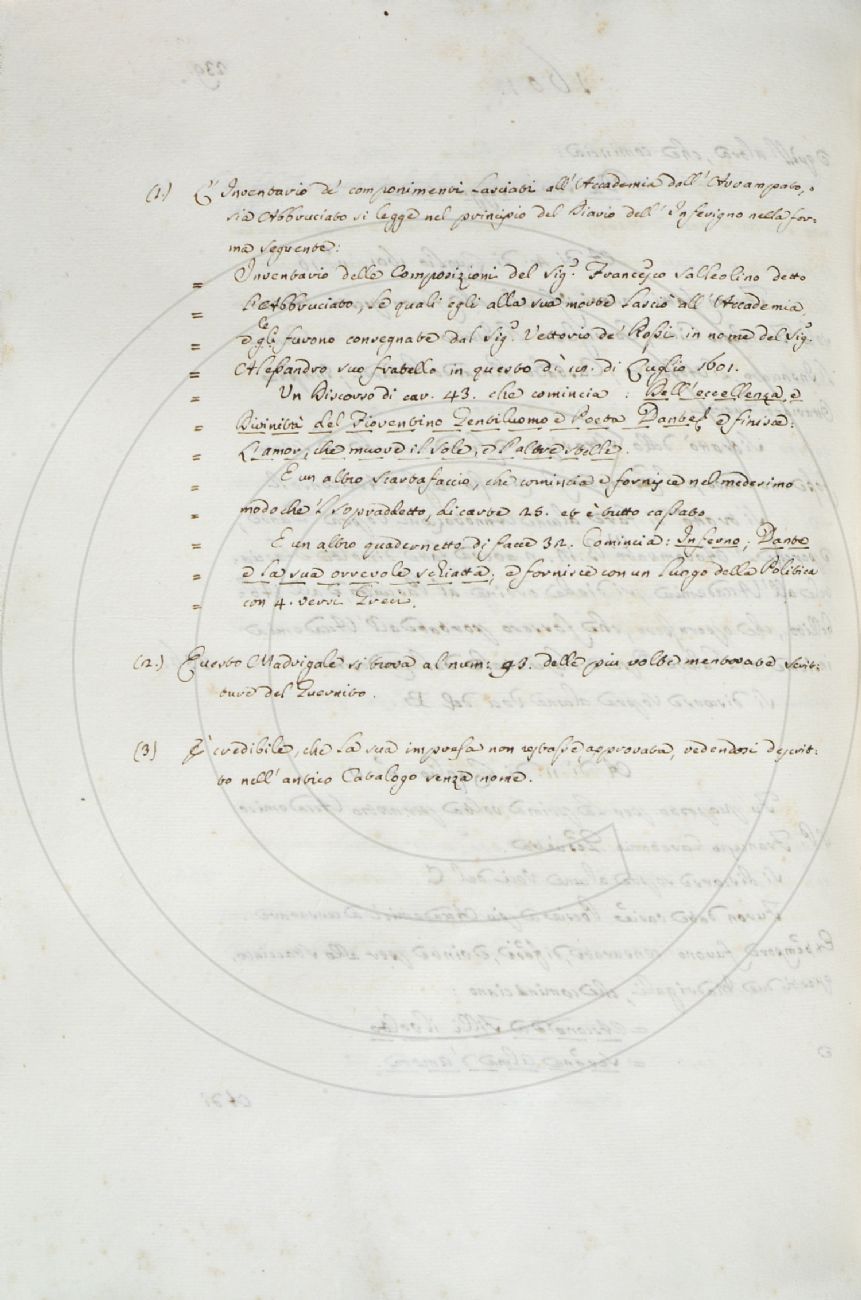 (1.) L'Inventario de' componimenti lasciati all'Accademia dall'Avvampato, o
sia Abbruciato si legge nel principio del Diario dell'Inferigno nella for=
ma seguente:
= Inventario delle Composizioni del Sig.r Francesco Sasseolino detto
= L'Abbruciato, le quali egli alla sua morte lasciò all'Accademia,
= e gli le furono consegnate dal Sig.r Vettorio de' Rossi in nome del Sig.r
= Alessandro suo fratello in questo dì 19. di Luglio 1601.
= Un Discorso di car. 43. che comincia: Dell'eccellenza, e
= Divinità del Fiorentino Gentiluomo e Poeta Dante, e finisce:
= L'amor, che muove il sole, e l'altre stelle.
= E un altro scartafaccio, che comincia e fornisce nel medesimo
= modo che 'l sopraddetto, di carte 25. et è tutto cassato
= E un altro quadernetto di facce 32. Comincia: Inferno, Dante
= e la sua orrevole schiatta, e fornisce con un luogo della Politica
= con 4. versi Greci.
(2.) Questo Madrigale si trova al num: 93. delle più volte mentovate scrit=
ture del Guernito.
(3) È credibile, che la sua impresa non restasse approvata, vedendosi descrit=
to nell'antico Catalogo senza nome.